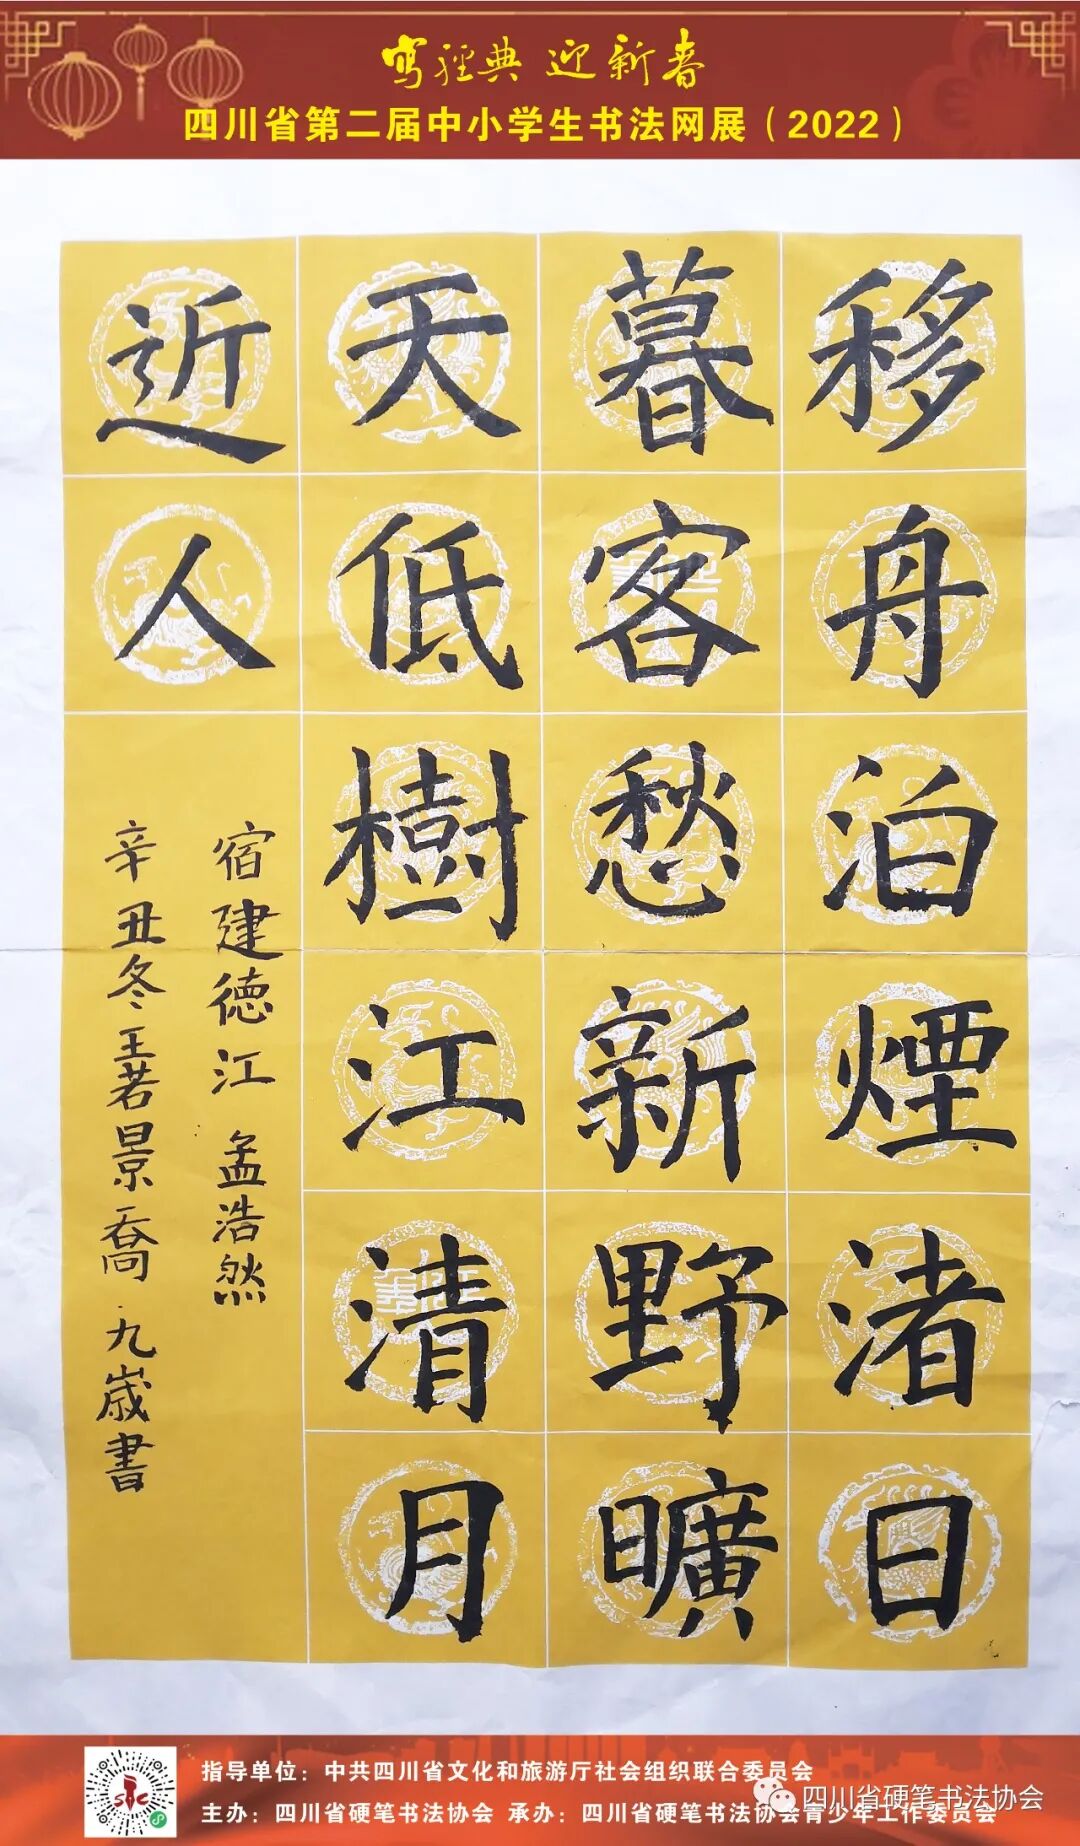 写經典 迎新春
四川省第二届中小学生书法网展（2022）
移舟泊煙渚日
暮客愁新野曠
天低樹江清月
近人
宿建德江 孟浩然
辛丑冬王若景喬·九歲書
指导单位：中共四川省文化和旅游厅社会组织联合委员会
主办：四川省硬笔书法协会 承办：四川省硬笔书法协会青少年工作委员会
四川省硬笔书法协会